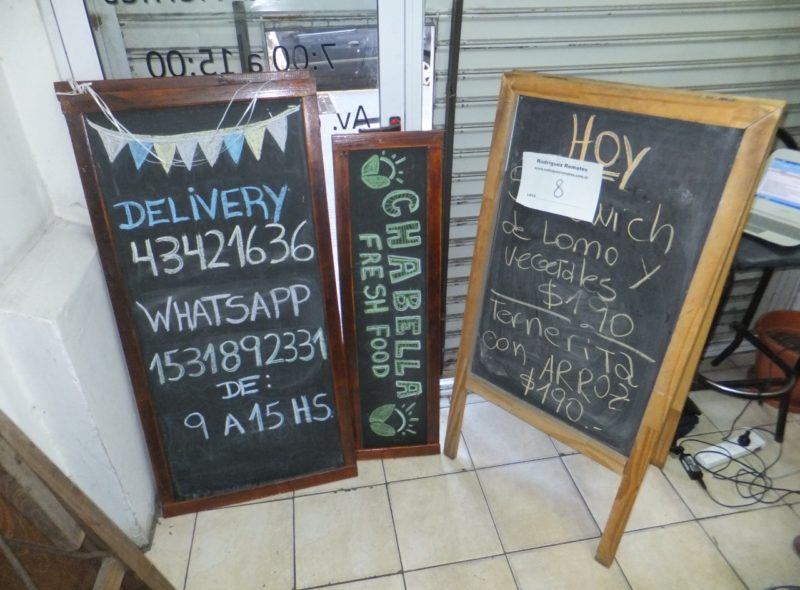 7:00 a 15:00
Av.
DELIVERY
43421636
WHATSAPP
1531892331
DE:
9 A 15 HS.
CHABELLA
FRESH FOOD
HOY
Rodriguez Remates
8
de Lomo y
vegetales
$190
Ternerita
con ARROZ
$190.-